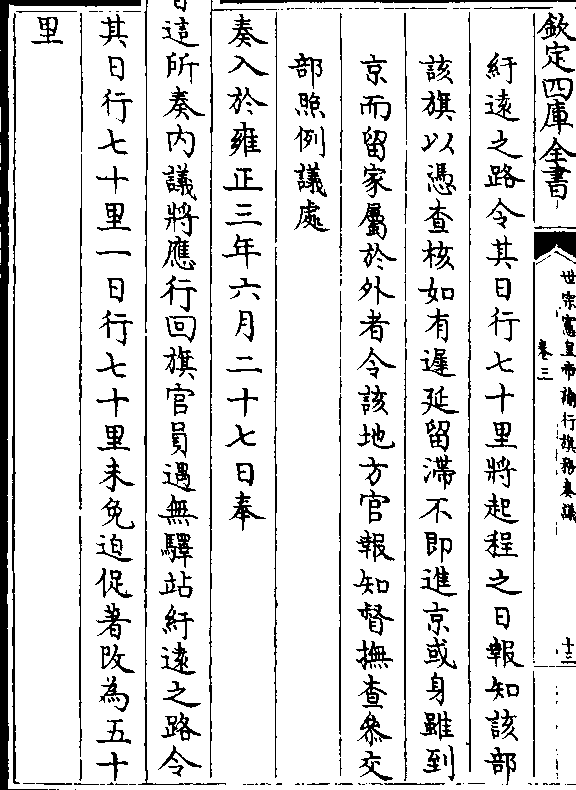 欽定四庫全書
世宗憲皇帝諭行旗務奏議
卷三
十三
紆遠之路令其日行七十里將起程之日報知該部
該旗以憑查核如有遲延留滯不即進京或身雖到
京而留家屬於外者令該地方官報知督撫查叅交
部照例議處
奏入於雍正三年六月二十七日奉
旨這所奏內議將應行回旗官員遇無驛站紆遠之路令
其日行七十里一日行七十里未免迫促著改為五十
里